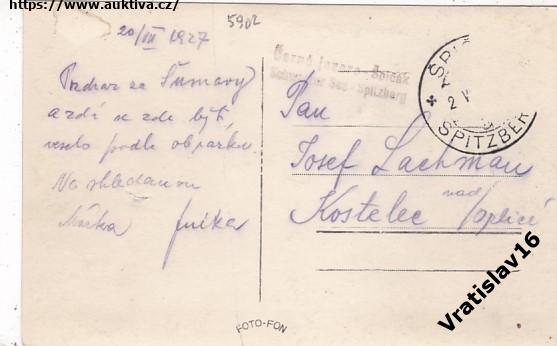 https://www.auktiva.cz/
20/VII 1927
5902
Pozdrav ze Šumavy
a zdá se zde být
veselo podle obrázku.
Na shledanou
Černé jezero - Špičák
Schwarzer See - Spitzberg
ŠPIČ
SPITZBER
Pan
Josef Lachman
Kostelec nad /Orlicí
FOTO-FON
Vratislav16